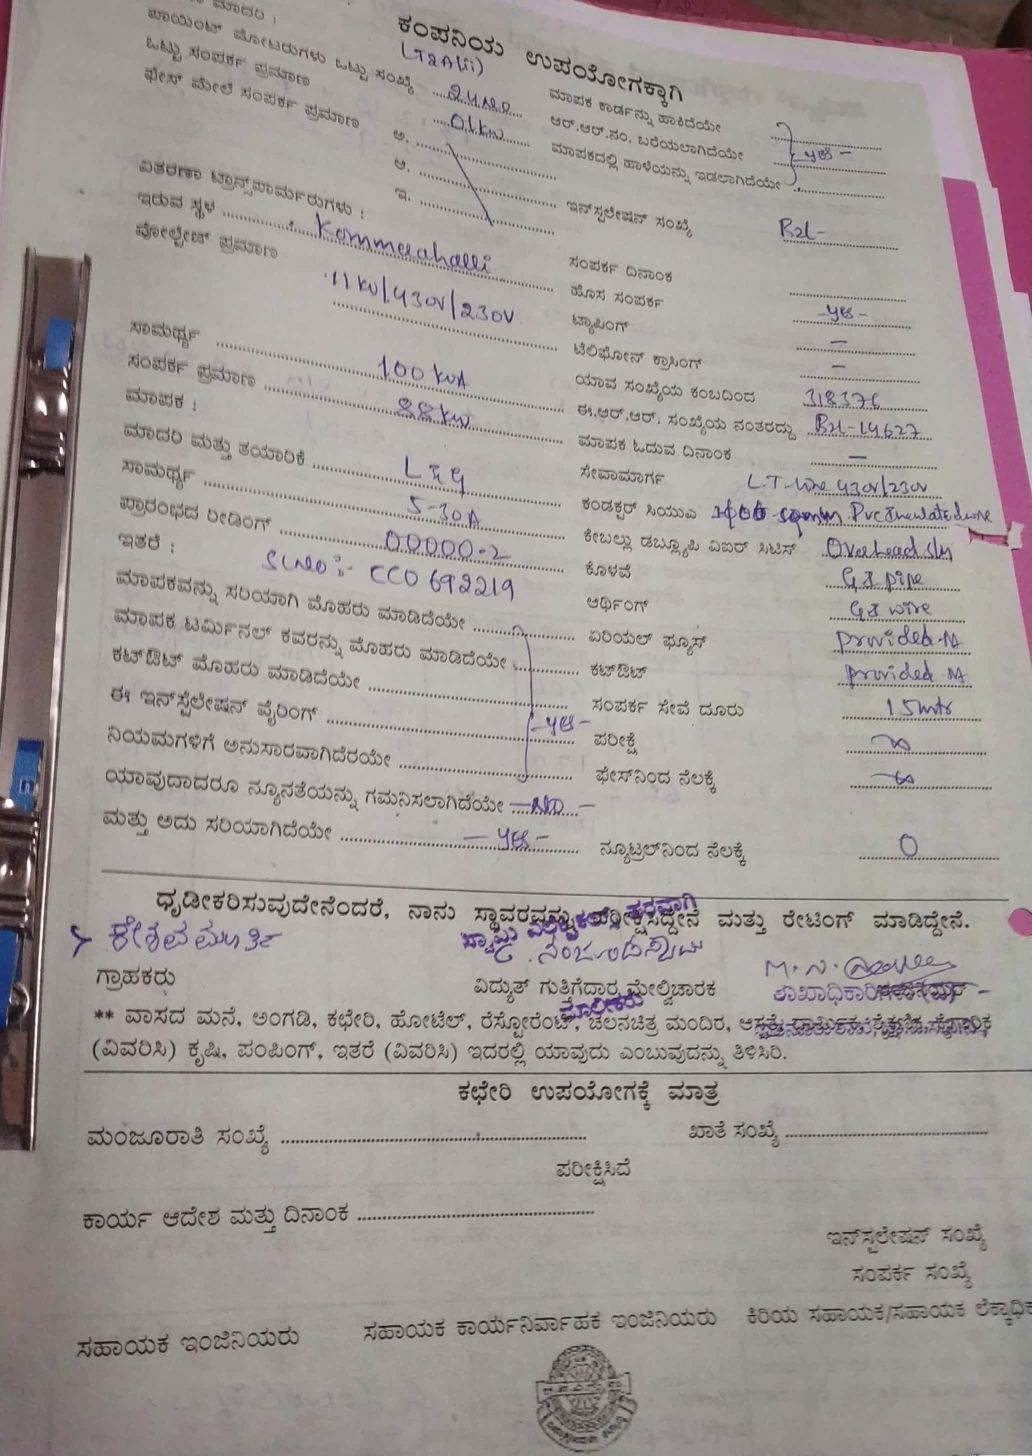 ಮಾದರಿ :
ಕಂಪನಿಯ ಉಪಯೋಗಕ್ಕಾಗಿ
LT2A(ii)
ಪಾಯಿಂಟ್ ಮೋಟರುಗಳು ಒಟ್ಟು ಸಂಖ್ಯೆ 2U No
ಒಟ್ಟು ಸಂಪರ್ಕ ಪ್ರಮಾಣ 01kw
ಫೇಸ್ ಮೇಲೆ ಸಂಪರ್ಕ ಪ್ರಮಾಣ ಅ.
ಆ.
ಇ.
ವಿತರಣಾ ಟ್ರಾನ್ಸ್‌ಫಾರ್ಮರುಗಳು :
ಇರುವ ಸ್ಥಳ Kommerahalli
ವೋಲ್ಟೇಜ್ ಪ್ರಮಾಣ 11KV/430V/230V
ಸಾಮರ್ಥ್ಯ 100 KVA
ಸಂಪರ್ಕ ಪ್ರಮಾಣ 88kw
ಮಾಪಕ :
ಮಾದರಿ ಮತ್ತು ತಯಾರಿಕೆ L&G
ಸಾಮರ್ಥ್ಯ 5-30A
ಪ್ರಾರಂಭದ ರೀಡಿಂಗ್ 00000-2
ಇತರೆ : Sl No :- CCO 692219
ಮಾಪಕವನ್ನು ಸರಿಯಾಗಿ ಮೊಹರು ಮಾಡಿದೆಯೇ
ಮಾಪಕ ಟರ್ಮಿನಲ್ ಕವರನ್ನು ಮೊಹರು ಮಾಡಿದೆಯೇ
ಕಟ್‌ಔಟ್ ಮೊಹರು ಮಾಡಿದೆಯೇ
ಈ ಇನ್‌ಸ್ಟೆಲೇಷನ್ ವೈರಿಂಗ್ -yes-
ನಿಯಮಗಳಿಗೆ ಅನುಸಾರವಾಗಿದೆರಯೇ
ಯಾವುದಾದರೂ ನ್ಯೂನತೆಯನ್ನು ಗಮನಿಸಲಾಗಿದೆಯೇ -NO-
ಮತ್ತು ಅದು ಸರಿಯಾಗಿದೆಯೇ -yes-
ಮಾಪಕ ಕಾರ್ಡನ್ನು ಹಾಕಿದೆಯೇ
ಆರ್.ಆರ್.ನಂ. ಬರೆಯಲಾಗಿದೆಯೇ yes-
ಮಾಪಕದಲ್ಲಿ ಹಾಳೆಯನ್ನು ಇಡಲಾಗಿದೆಯೇ
ಇನ್‌ಸ್ಟಲೇಷನ್ ಸಂಖ್ಯೆ B2L-
ಸಂಪರ್ಕ ದಿನಾಂಕ
ಹೊಸ ಸಂಪರ್ಕ -yes-
ಟ್ಯಾಪಿಂಗ್ -
ಟೆಲಿಫೋನ್ ಕ್ರಾಸಿಂಗ್ -
ಯಾವ ಸಂಖ್ಯೆಯ ಕಂಬದಿಂದ 318376
ಈ.ಆರ್.ಆರ್. ಸಂಖ್ಯೆಯ ನಂತರದ್ದು B2L-14627
ಮಾಪಕ ಓದುವ ದಿನಾಂಕ -
ಸೇವಾಮಾರ್ಗ L.T-Line 430V/230V
ಕಂಡಕ್ಟರ್ ಸಿಯುಎ sqmm Pvc Insulated wire
ಕೇಬಲ್ಲು ಡಬ್ಲ್ಯೂಪಿ ವಿಐರ್ ಸಿಟಿಸ್ Overhead
ಕೊಳವೆ G.I pipe
ಅರ್ಥಿಂಗ್ G.I wire
ಏರಿಯಲ್ ಫ್ಯೂಸ್ provided
ಕಟ್‌ಔಟ್ provided
ಸಂಪರ್ಕ ಸೇವೆ ದೂರು 15mtr
ಪರೀಕ್ಷೆ ∞
ಫೇಸ್‌ನಿಂದ ನೆಲಕ್ಕೆ ∞
ನ್ಯೂಟ್ರಲ್‌ನಿಂದ ನೆಲಕ್ಕೆ 0
ಧೃಡೀಕರಿಸುವುದೇನೆಂದರೆ, ನಾನು ಸ್ಥಾವರವನ್ನು ಪರೀಕ್ಷಿಸಿದ್ದೇನೆ ಮತ್ತು ರೇಟಿಂಗ್ ಮಾಡಿದ್ದೇನೆ.
ಕೇಶವಮೂರ್ತಿ
ಗ್ರಾಹಕರು
ವಿದ್ಯುತ್ ಗುತ್ತಿಗೆದಾರ ಮೇಲ್ವಿಚಾರಕ
ಮಾಲೀಕರು
ಶಾಖಾಧಿಕಾರಿ
** ವಾಸದ ಮನೆ, ಅಂಗಡಿ, ಕಛೇರಿ, ಹೋಟೆಲ್, ರೆಸ್ಟೋರೆಂಟ್, ಚಲನಚಿತ್ರ ಮಂದಿರ, ಆಸ್ಪತ್ರೆ,
(ವಿವರಿಸಿ) ಕೃಷಿ, ಪಂಪಿಂಗ್, ಇತರೆ (ವಿವರಿಸಿ) ಇದರಲ್ಲಿ ಯಾವುದು ಎಂಬುವುದನ್ನು ತಿಳಿಸಿರಿ.
ಕಛೇರಿ ಉಪಯೋಗಕ್ಕೆ ಮಾತ್ರ
ಮಂಜೂರಾತಿ ಸಂಖ್ಯೆ ಖಾತೆ ಸಂಖ್ಯೆ
ಪರೀಕ್ಷಿಸಿದೆ
ಕಾರ್ಯ ಆದೇಶ ಮತ್ತು ದಿನಾಂಕ
ಇನ್‌ಸ್ಟಲೇಷನ್ ಸಂಖ್ಯೆ
ಸಂಪರ್ಕ ಸಂಖ್ಯೆ
ಸಹಾಯಕ ಇಂಜಿನಿಯರು ಸಹಾಯಕ ಕಾರ್ಯನಿರ್ವಾಹಕ ಇಂಜಿನಿಯರು ಕಿರಿಯ ಸಹಾಯಕ/ಸಹಾಯಕ ಲೆಕ್ಕಾಧಿಕ